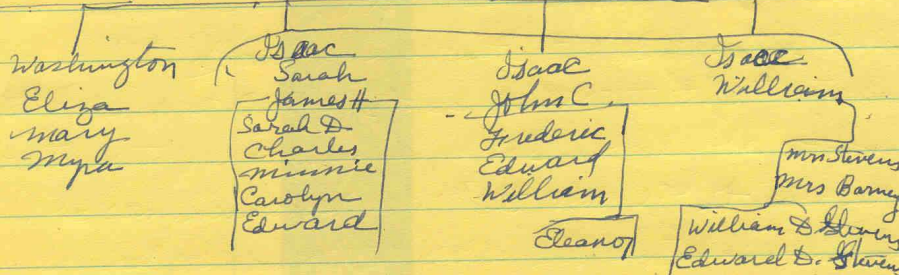 Washington
Eliza
Mary
Myra
Isaac
Sarah
James H
Sarah D
Charles
Minnie
Carolyn
Edward
Isaac
John C.
Frederic
Edward
William
Eleanor
Isaac
William
Mrs Stevens
Mrs Barney
William D. Stevens
Edward D. Steven